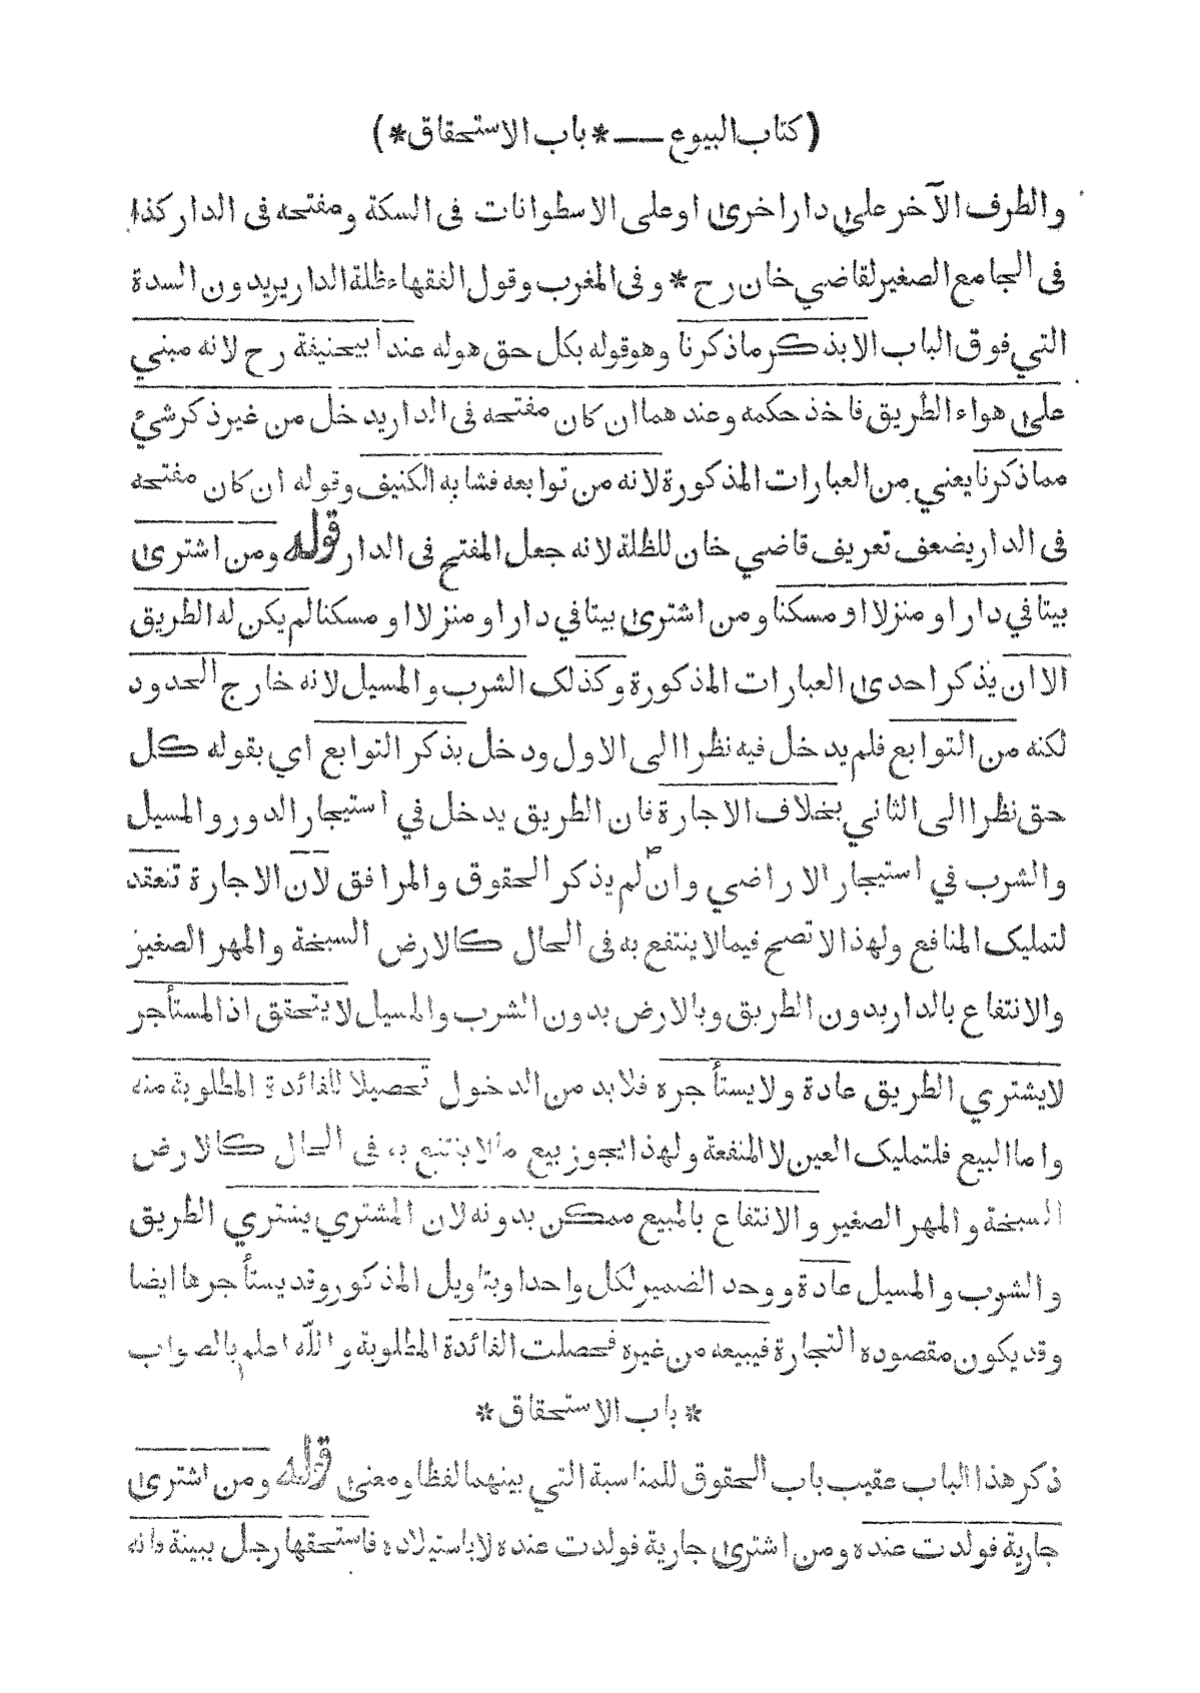 (كتاب البيوع — * باب الاستحقاق *)
والطرف الآخر على دار اخرى او على الاسطوانات فى السكة ومفتحه فى الدار كذا
فى الجامع الصغير لقاضي خان رح * وفى المغرب وقول الفقهاء ظلة الدار يريدون السدة
التي فوق الباب الا بذكر ما ذكرنا وهو قوله بكل حق هو له عند ابيحنيفة رح لانه مبني
على هواء الطريق فاخذ حكمه وعندهما ان كان مفتحه فى الدار يدخل من غير ذكر شئ
مما ذكرنا يعني من العبارات المذكورة لانه من توابعه فشابه الكنيف وقوله ان كان مفتحه
فى الدار يضعف تعريف قاضي خان للظلة لانه جعل المفتح فى الدار قوله ومن اشترى
بيتا في دار او منزلا او مسكنا ومن اشترى بيتا في دار او منزلا او مسكنا لم يكن له الطريق
الا ان يذكر احدى العبارات المذكورة وكذلك الشرب والمسيل لانه خارج الحدود
لكنه من التوابع فلم يدخل فيه نظرا الى الاول ودخل بذكر التوابع اي بقوله كل
حق نظرا الى الثاني بخلاف الاجارة فان الطريق يدخل في استيجار الدور والمسيل
والشرب في استيجار الاراضي وان لم يذكر الحقوق والمرافق لان الاجارة تنعقد
لتمليك المنافع ولهذا لا تصح فيما لا ينتفع به فى الحال كالارض السبخة والمهر الصغير
والانتفاع بالدار بدون الطريق وبالارض بدون الشرب والمسيل لا يتحقق اذ المستأجر
لا يشتري الطريق عادة ولا يستأجره فلا بد من الدخول تحصيلا للفائدة المطلوبة منه
واما البيع فلتمليك العين لا المنفعة ولهذا يجوز بيع ما لا ينتفع به فى الحال كالارض
السبخة والمهر الصغير والانتفاع بالمبيع ممكن بدونه لان المشتري يشتري الطريق
والشرب والمسيل عادة ووحد الضمير لكل واحد او بتاويل المذكور وقد يستأجرها ايضا
وقد يكون مقصوده التجارة فيبيعه من غيره فحصلت الفائدة المطلوبة والله اعلم بالصواب
* باب الاستحقاق *
ذكر هذا الباب عقيب باب الحقوق للمناسبة التي بينهما لفظا ومعنى قوله ومن اشترى
جارية فولدت عنده ومن اشترى جارية فولدت عنده لا باستيلاده فاستحقها رجل ببينة فانه